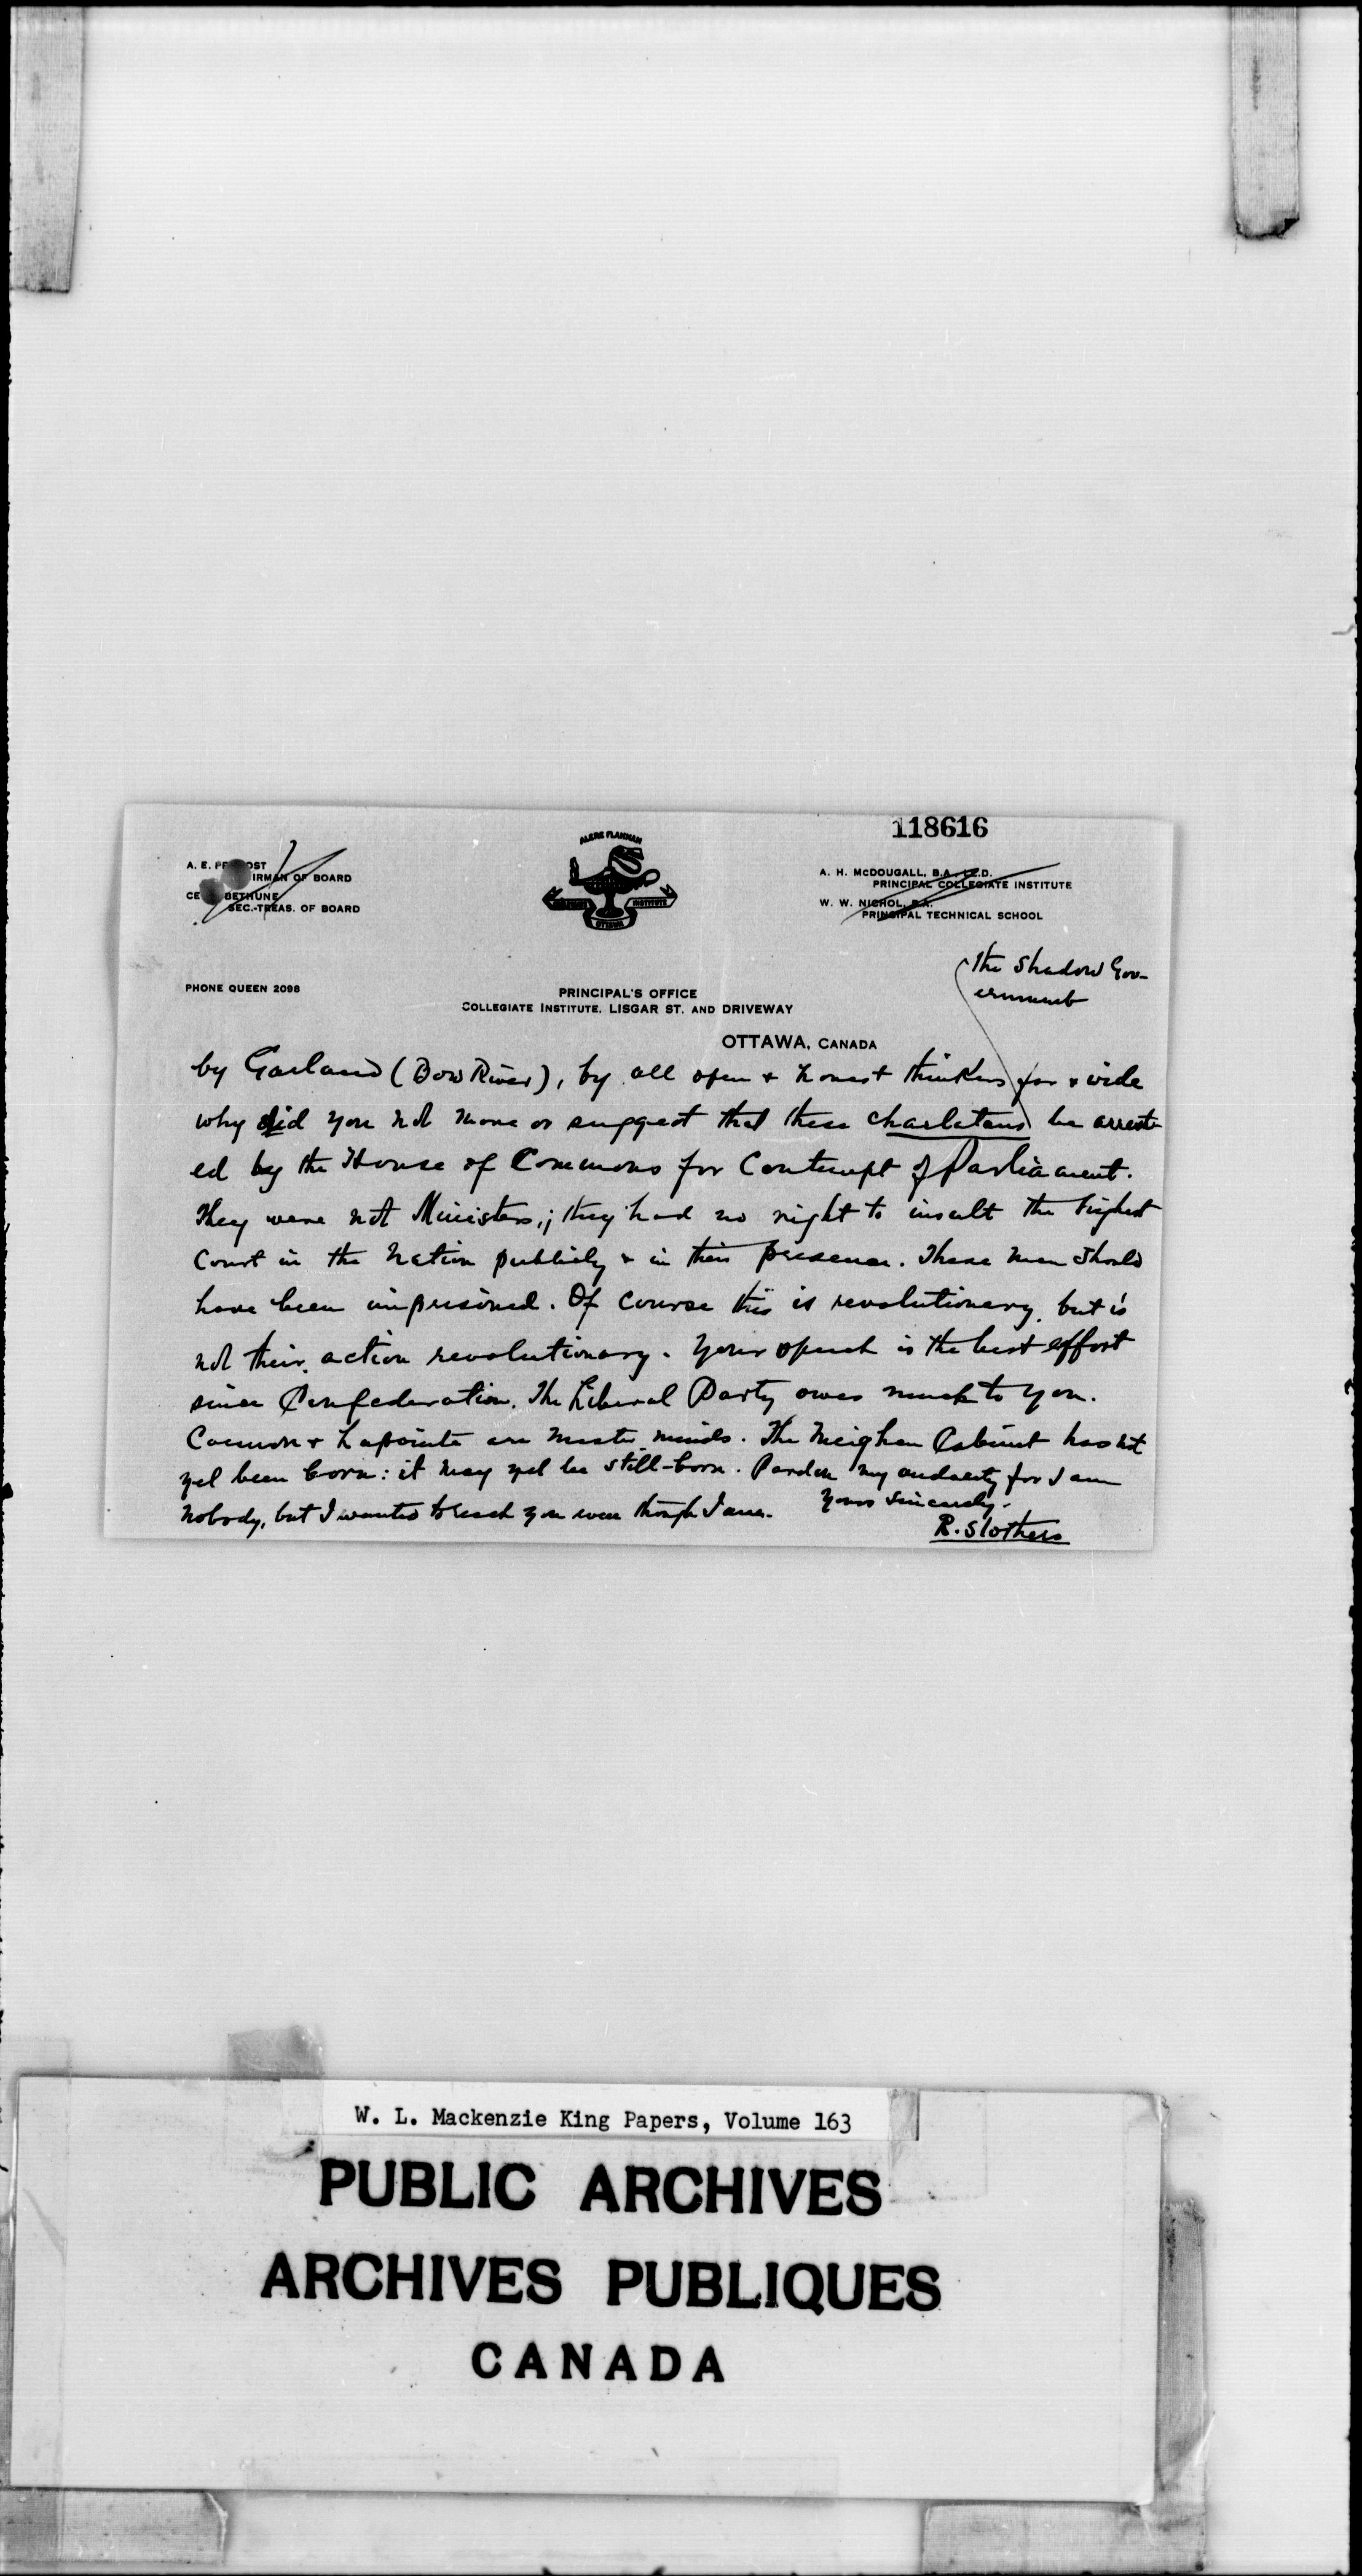 118616
A. E. PR OST
IRMAN OF BOARD
CE BETHUNE
SEC.-TREAS. OF BOARD
ALERE FLAMMAM
INSTITUTE
OTTAWA
A. H. McDOUGALL, B.A., LL.D.
PRINCIPAL COLLEGIATE INSTITUTE
W. W. NICHOL, B.A.
PRINCIPAL TECHNICAL SCHOOL
PHONE QUEEN 2098
PRINCIPAL'S OFFICE
COLLEGIATE INSTITUTE, LISGAR ST. AND DRIVEWAY
OTTAWA, CANADA
the Shadow Gov-
ernment
by Garland (Bow River), by all open & honest thinkers far & wide
why did you not move or suggest that these charlatans be arrest-
ed by the House of Commons for Contempt of Parliament.
They were not Ministers; they had no right to insult the highest
Court in the Nation publicly & in their presence. These men should
have been imprisoned. Of course this is revolutionary, but is
not their action revolutionary. Your speech is the best effort
since Confederation. The Liberal Party owes much to you.
Cannon & Lapointe are master minds. The Meighen Cabinet has not
yet been born: it may yet be still-born. Pardon my audacity for I am
nobody, but I wanted to reach you even though I am.
Yours Sincerely.
R. Slothers
W. L. Mackenzie King Papers, Volume 163
PUBLIC ARCHIVES
ARCHIVES PUBLIQUES
CANADA